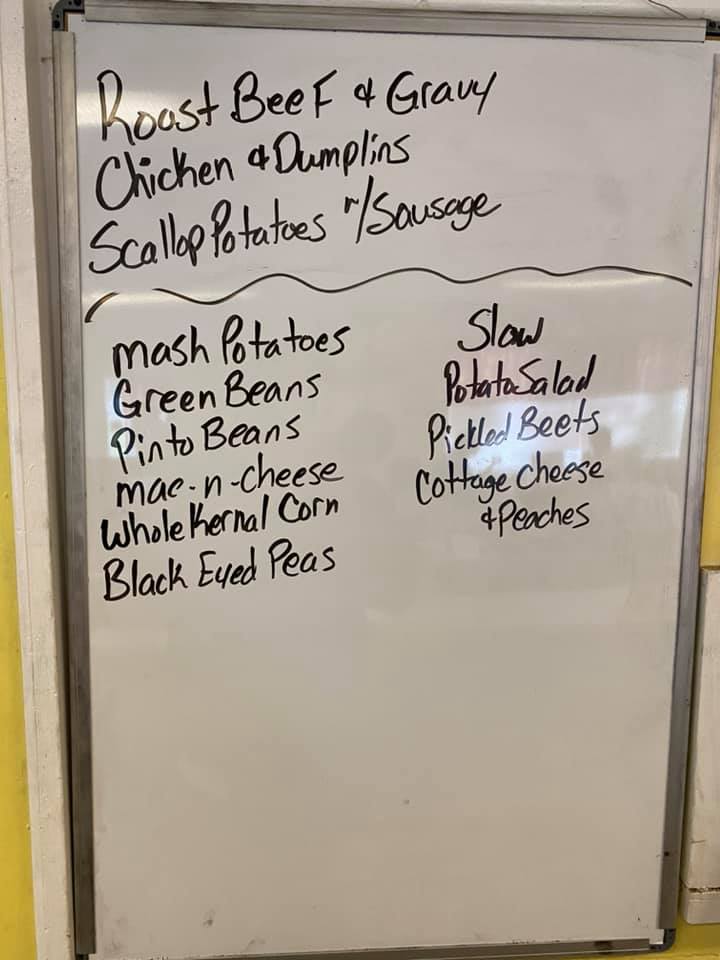 Roast Beef & Gravy
Chicken & Dumplins
Scallop Potatoes w/Sausage
mash Potatoes
Green Beans
Pinto Beans
mac-n-cheese
Whole Kernal Corn
Black Eyed Peas
Slaw
Potato Salad
Pickled Beets
Cottage Cheese
& Peaches